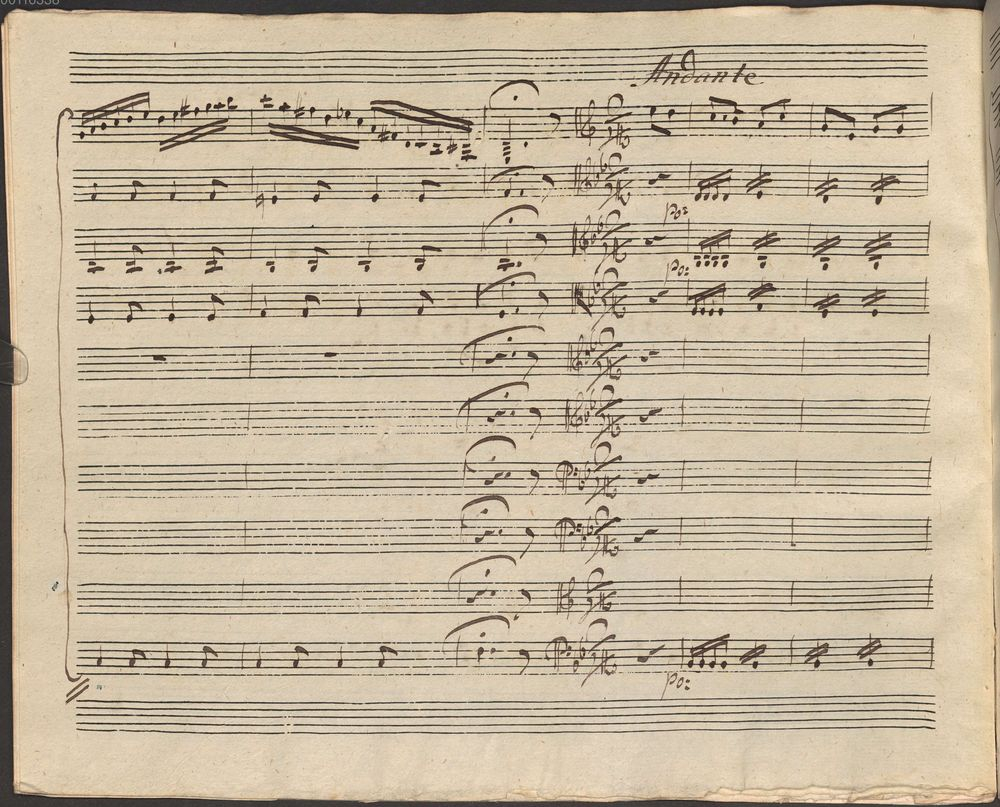 Andante
po:
po:
po: